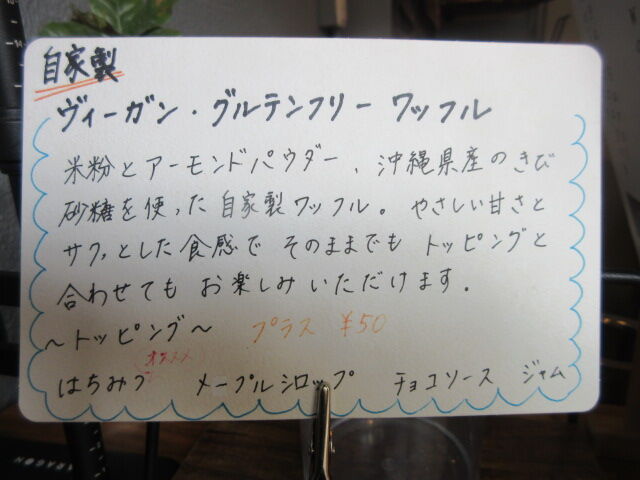 自家製
ヴィーガン・グルテンフリー ワッフル
米粉とアーモンドパウダー、沖縄県産のきび
砂糖を使った自家製ワッフル。やさしい甘さと
サクッとした食感で そのままでも トッピングと
合わせても お楽しみいただけます.
〜トッピング〜 プラス ¥50
オススメ
はちみつ メープルシロップ チョコソース ジャム